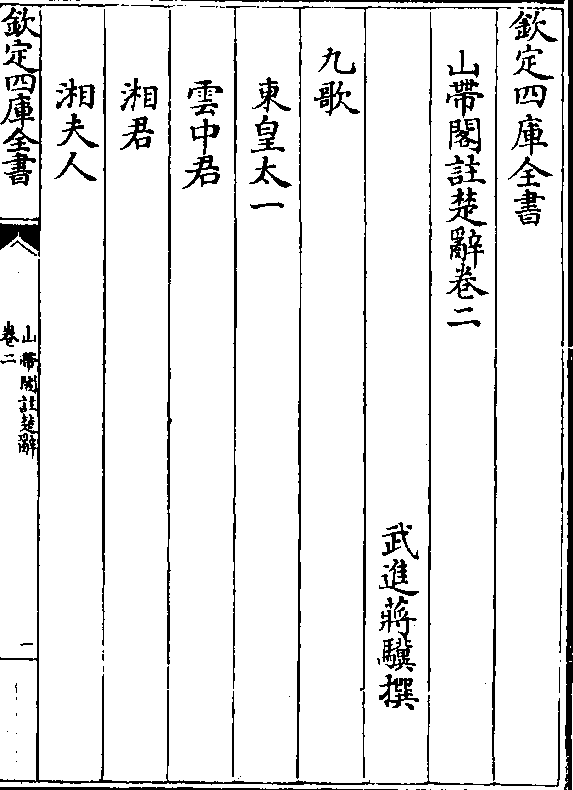 欽定四庫全書
山帶閣註楚辭卷二
武進蔣驥撰
九歌
東皇太一
雲中君
湘君
湘夫人
欽定四庫全書
山帶閣註楚辭
卷二
一